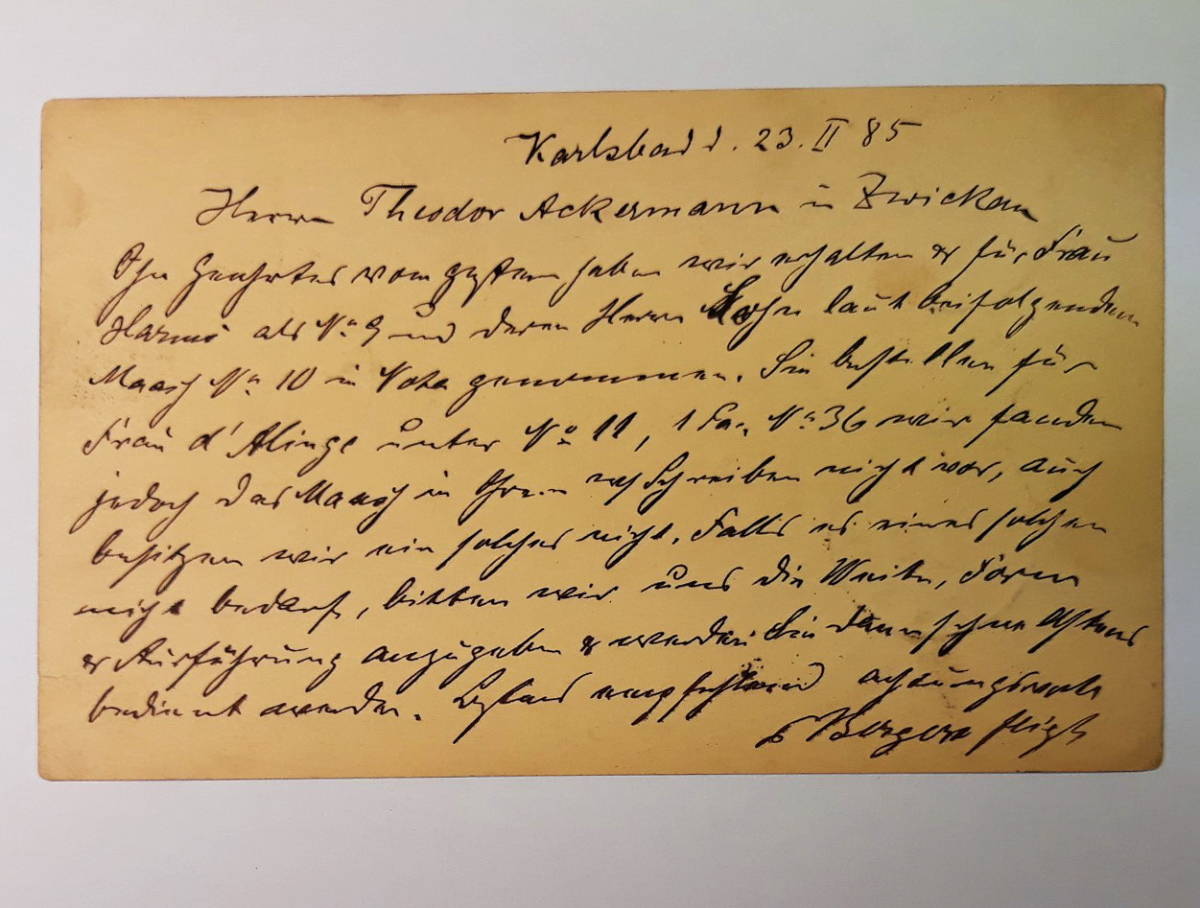 Karlsbad d. 23. II 85
Herrn Theodor Ackermann in Zwickau
Ihr Geehrtes vom gestern haben wir erhalten & für Frau
als No 9 und deren Herrn Sohn laut beifolgendem
Maass No 10 in Nota genommen. Sie bestellen für
Frau d'Alinge unter No 11, 1 No 36 wir fanden
jedoch das Maass in Ihrem Schreiben nicht vor, auch
besitzen wir ein solches nicht. Falls es eines solchen
nicht bedarf, bitten wir uns die Weite, Form
& Ausführung anzugeben & werden Sie dann schnellstens
bedient werden. Bestens empfehlend achtungsvoll